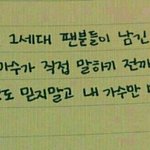 1세대 팬분들이 남긴
가수가 직접 말하기 전까
믿지말고 내 가수만